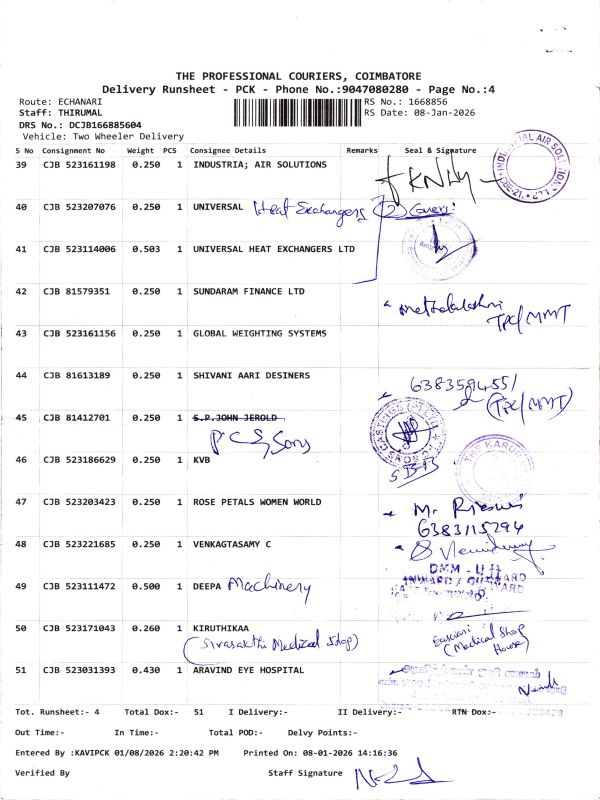 THE PROFESSIONAL COURIERS, COIMBATORE
Delivery Runsheet - PCK - Phone No.:9047080280 - Page No.:4
Route: ECHANARI RS No.: 1668856
Staff: THIRUMAL RS Date: 08-Jan-2026
DRS No.: DCJB166885604
Vehicle: Two Wheeler Delivery
S No Consignment No Weight PCS Consignee Details Remarks Seal & Signature
39 CJB 523161198 0.250 1 INDUSTRIA; AIR SOLUTIONS
40 CJB 523207076 0.250 1 UNIVERSAL Heat Exchangers
41 CJB 523114006 0.503 1 UNIVERSAL HEAT EXCHANGERS LTD
42 CJB 81579351 0.250 1 SUNDARAM FINANCE LTD
TPC/MMT
43 CJB 523161156 0.250 1 GLOBAL WEIGHTING SYSTEMS
44 CJB 81613189 0.250 1 SHIVANI AARI DESINERS
(TPC/MMT)
45 CJB 81412701 0.250 1 S.P.JOHN JEROLD
Sons
46 CJB 523186629 0.250 1 KVB
THE KARUR
47 CJB 523203423 0.250 1 ROSE PETALS WOMEN WORLD Mr.
6383115294
48 CJB 523221685 0.250 1 VENKAGTASAMY C
49 CJB 523111472 0.500 1 DEEPA Machinery
50 CJB 523171043 0.260 1 KIRUTHIKAA
(Sivasakthi Medical Shop) (Medical Shop
House)
51 CJB 523031393 0.430 1 ARAVIND EYE HOSPITAL
Tot. Runsheet:- 4 Total Dox:- 51 I Delivery:- II Delivery:- RTN Dox:-
Out Time:- In Time:- Total POD:- Delvy Points:-
Entered By :KAVIPCK 01/08/2026 2:20:42 PM Printed On: 08-01-2026 14:16:36
Verified By Staff Signature